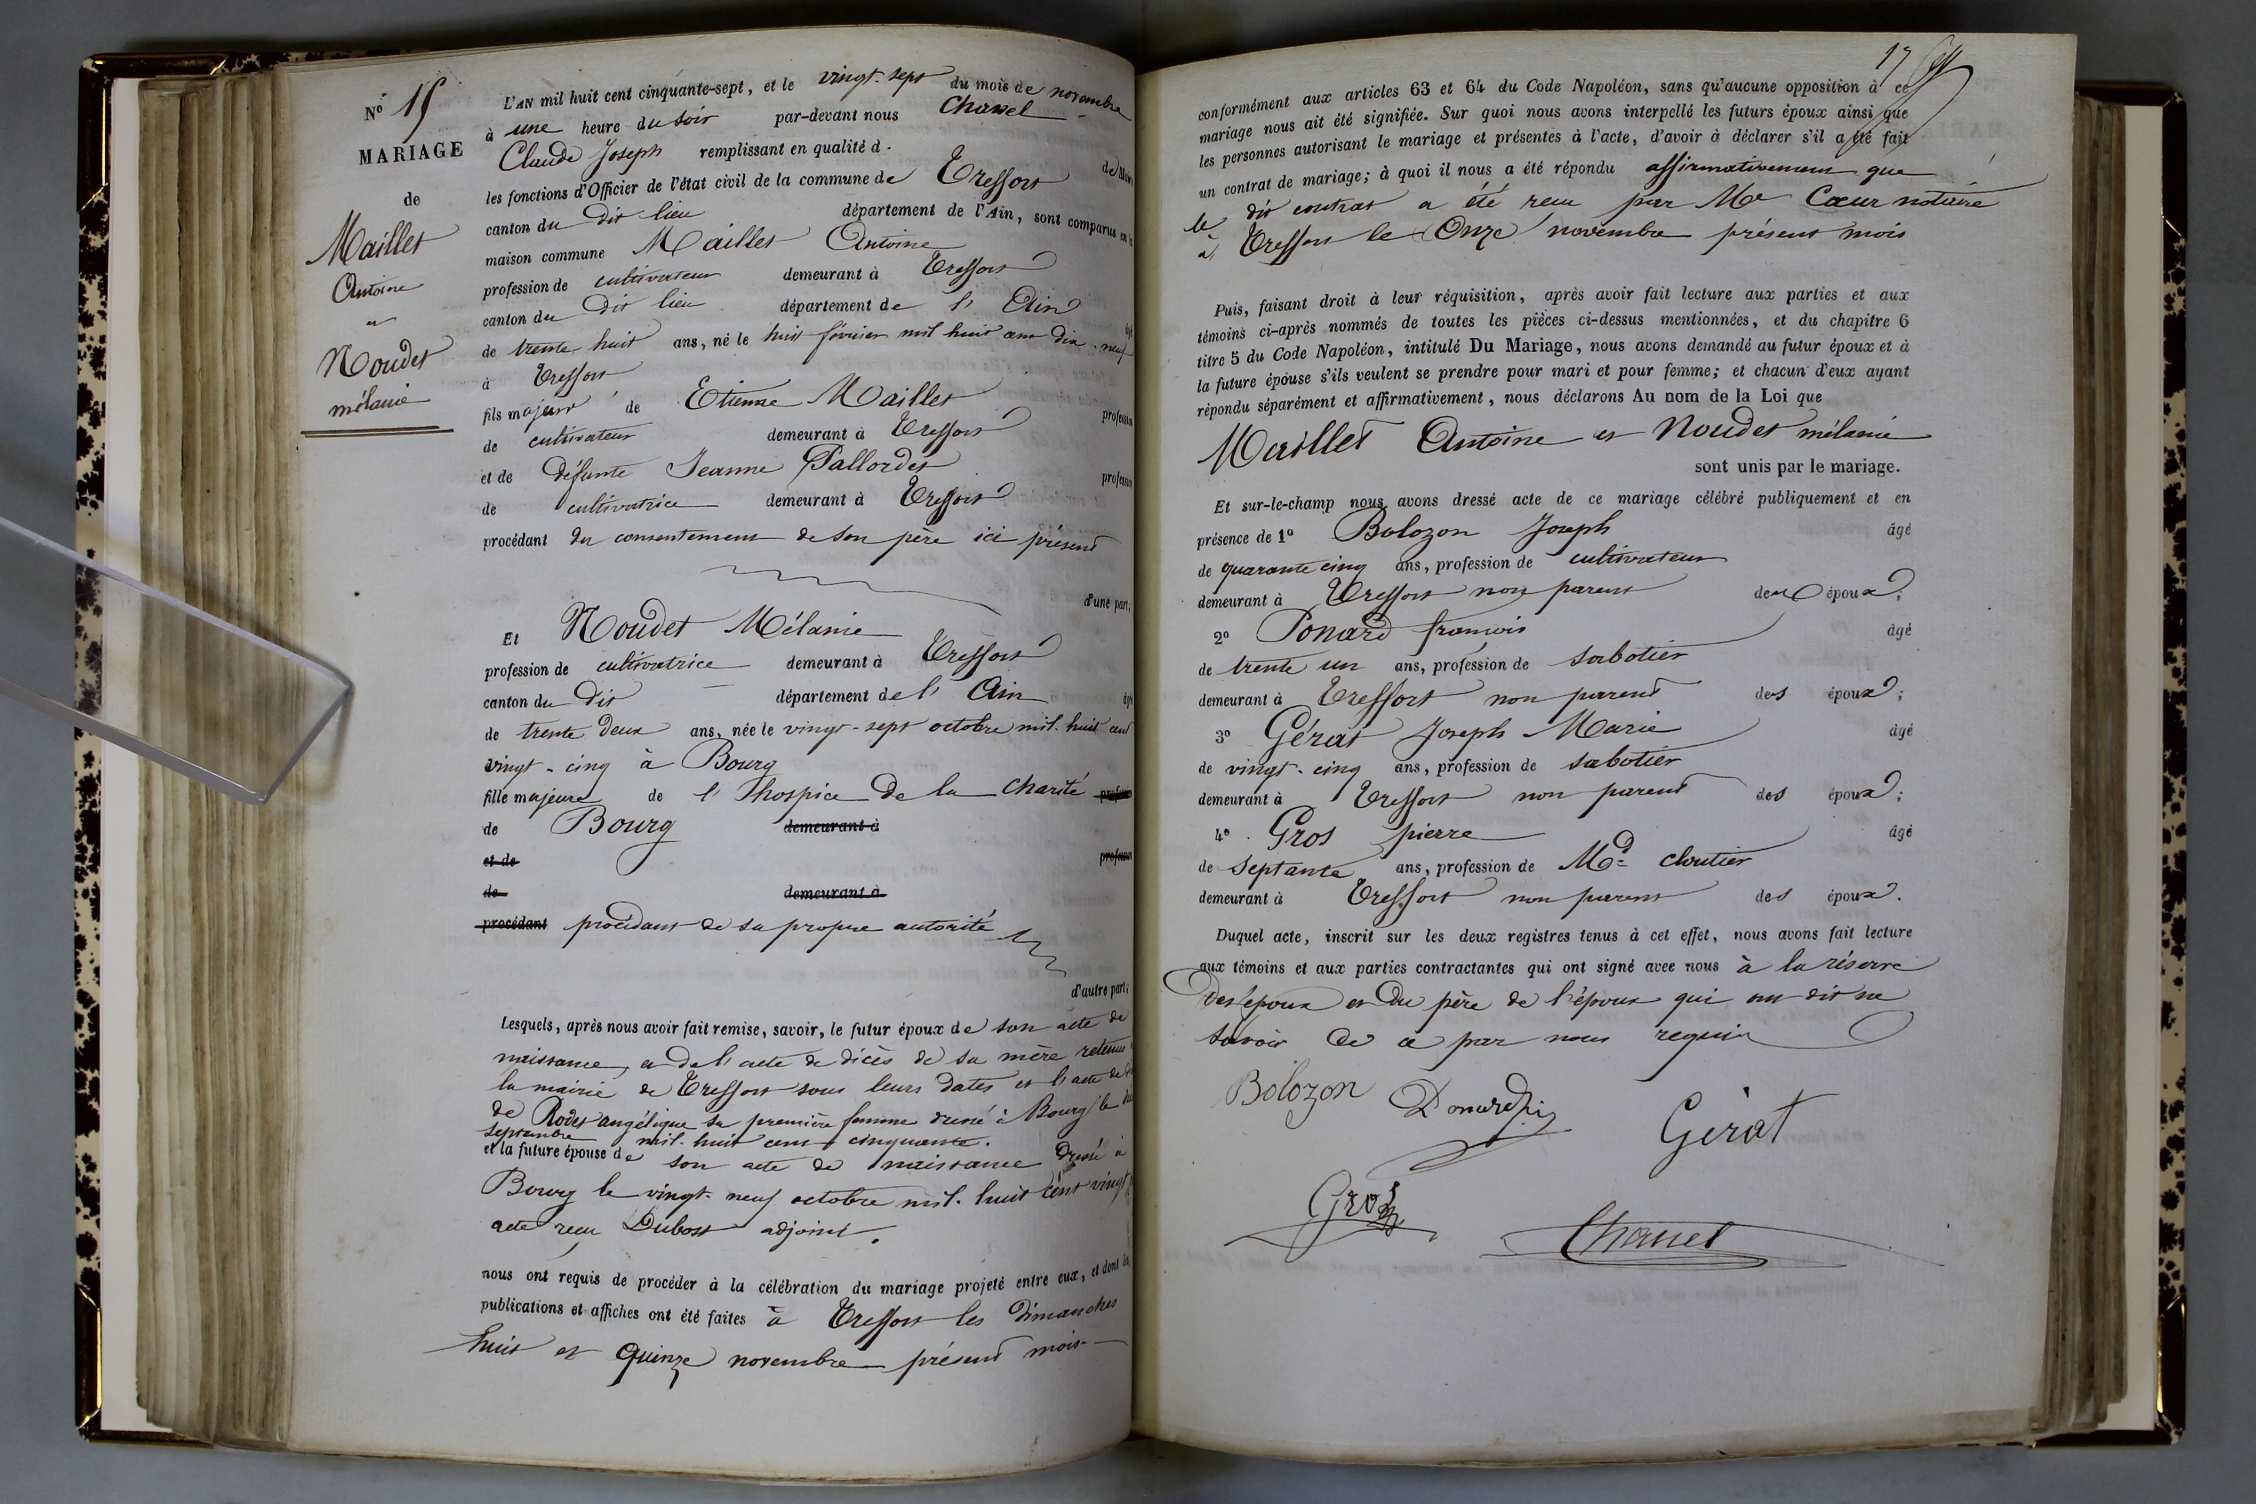 N° 15
MARIAGE
de
Maillet
Antoine
et
Noudet
mélanie
L'AN mil huit cent cinquante-sept, et le vingt-sept du mois de novembre
à une heure du soir par-devant nous Chanel
Claude Joseph remplissant en qualité d de Maire
les fonctions d'Officier de l'état civil de la commune de Treffort
canton du dit lieu département de l'Ain, sont comparus en la
maison commune Maillet Antoine
profession de cultivateur demeurant à Treffort
canton du dit lieu département de l'Ain âgé
de trente huit ans, né le huit février mil huit cent dix-neuf
à Treffort
fils majeur de Etienne Maillet profession
de cultivateur demeurant à Treffort
et de défunte Jeanne Pallordet profession
de cultivatrice demeurant à Treffort
procédant du consentement de son père ici présent
d'une part;
Et Noudet Mélanie
profession de cultivatrice demeurant à Treffort
canton du dit département de l'Ain âgée
de trente deux ans, née le vingt-sept octobre mil huit cent
vingt-cinq à Bourg
fille majeure de l'hospice De la Charité profession
de Bourg demeurant à
et de profession
de demeurant à
procédant procédant de sa propre autorité
d'autre part;
Lesquels, après nous avoir fait remise, savoir, le futur époux de son acte de
naissance, et de l'acte de décès de sa mère retenus
la mairie de Treffort sous leurs dates et l'acte de
de Rodet angélique sa première femme dressé à Bourg le
septembre mil huit cent cinquante.
et la future épouse de son acte de naissance dressé à
Bourg le vingt-neuf octobre mil huit cent vingt
acte reçu Dubost adjoint.
nous ont requis de procéder à la célébration du mariage projeté entre eux, et dont les
publications et affiches ont été faites à Treffort les dimanches
huit et quinze novembre présent mois
17
conformément aux articles 63 et 64 du Code Napoléon, sans qu'aucune opposition à ce
mariage nous ait été signifiée. Sur quoi nous avons interpellé les futurs époux ainsi que
les personnes autorisant le mariage et présentes à l'acte, d'avoir à déclarer s'il a été fait
un contrat de mariage; à quoi il nous a été répondu affirmativement que
le dit contrat a été reçu par Me Cœur notaire
à Treffort le Onze novembre présent mois
Puis, faisant droit à leur réquisition, après avoir fait lecture aux parties et aux
témoins ci-après nommés de toutes les pièces ci-dessus mentionnées, et du chapitre 6
titre 5 du Code Napoléon, intitulé Du Mariage, nous avons demandé au futur époux et à
la future épouse s'ils veulent se prendre pour mari et pour femme; et chacun d'eux ayant
répondu séparément et affirmativement, nous déclarons Au nom de la Loi que
Maillet Antoine et Noudet mélanie
sont unis par le mariage.
Et sur-le-champ nous avons dressé acte de ce mariage célébré publiquement et en
présence de 1° Bolozon Joseph âgé
de quarante cinq ans, profession de cultivateur
demeurant à Treffort non parent des époux;
2° Ponard françois âgé
de trente un ans, profession de sabotier
demeurant à Treffort non parent des époux;
3° Gérat Joseph Marie âgé
de vingt-cinq ans, profession de sabotier
demeurant à Treffort non parent des époux;
4° Gros pierre âgé
de septante ans, profession de Md cloutier
demeurant à Treffort non parent des époux.
Duquel acte, inscrit sur les deux registres tenus à cet effet, nous avons fait lecture
aux témoins et aux parties contractantes qui ont signé avec nous à la réserve
des époux et du père de l'époux qui ont dit ne
savoir de ce par nous requis
Bolozon
Gérat
Gros
Chanel